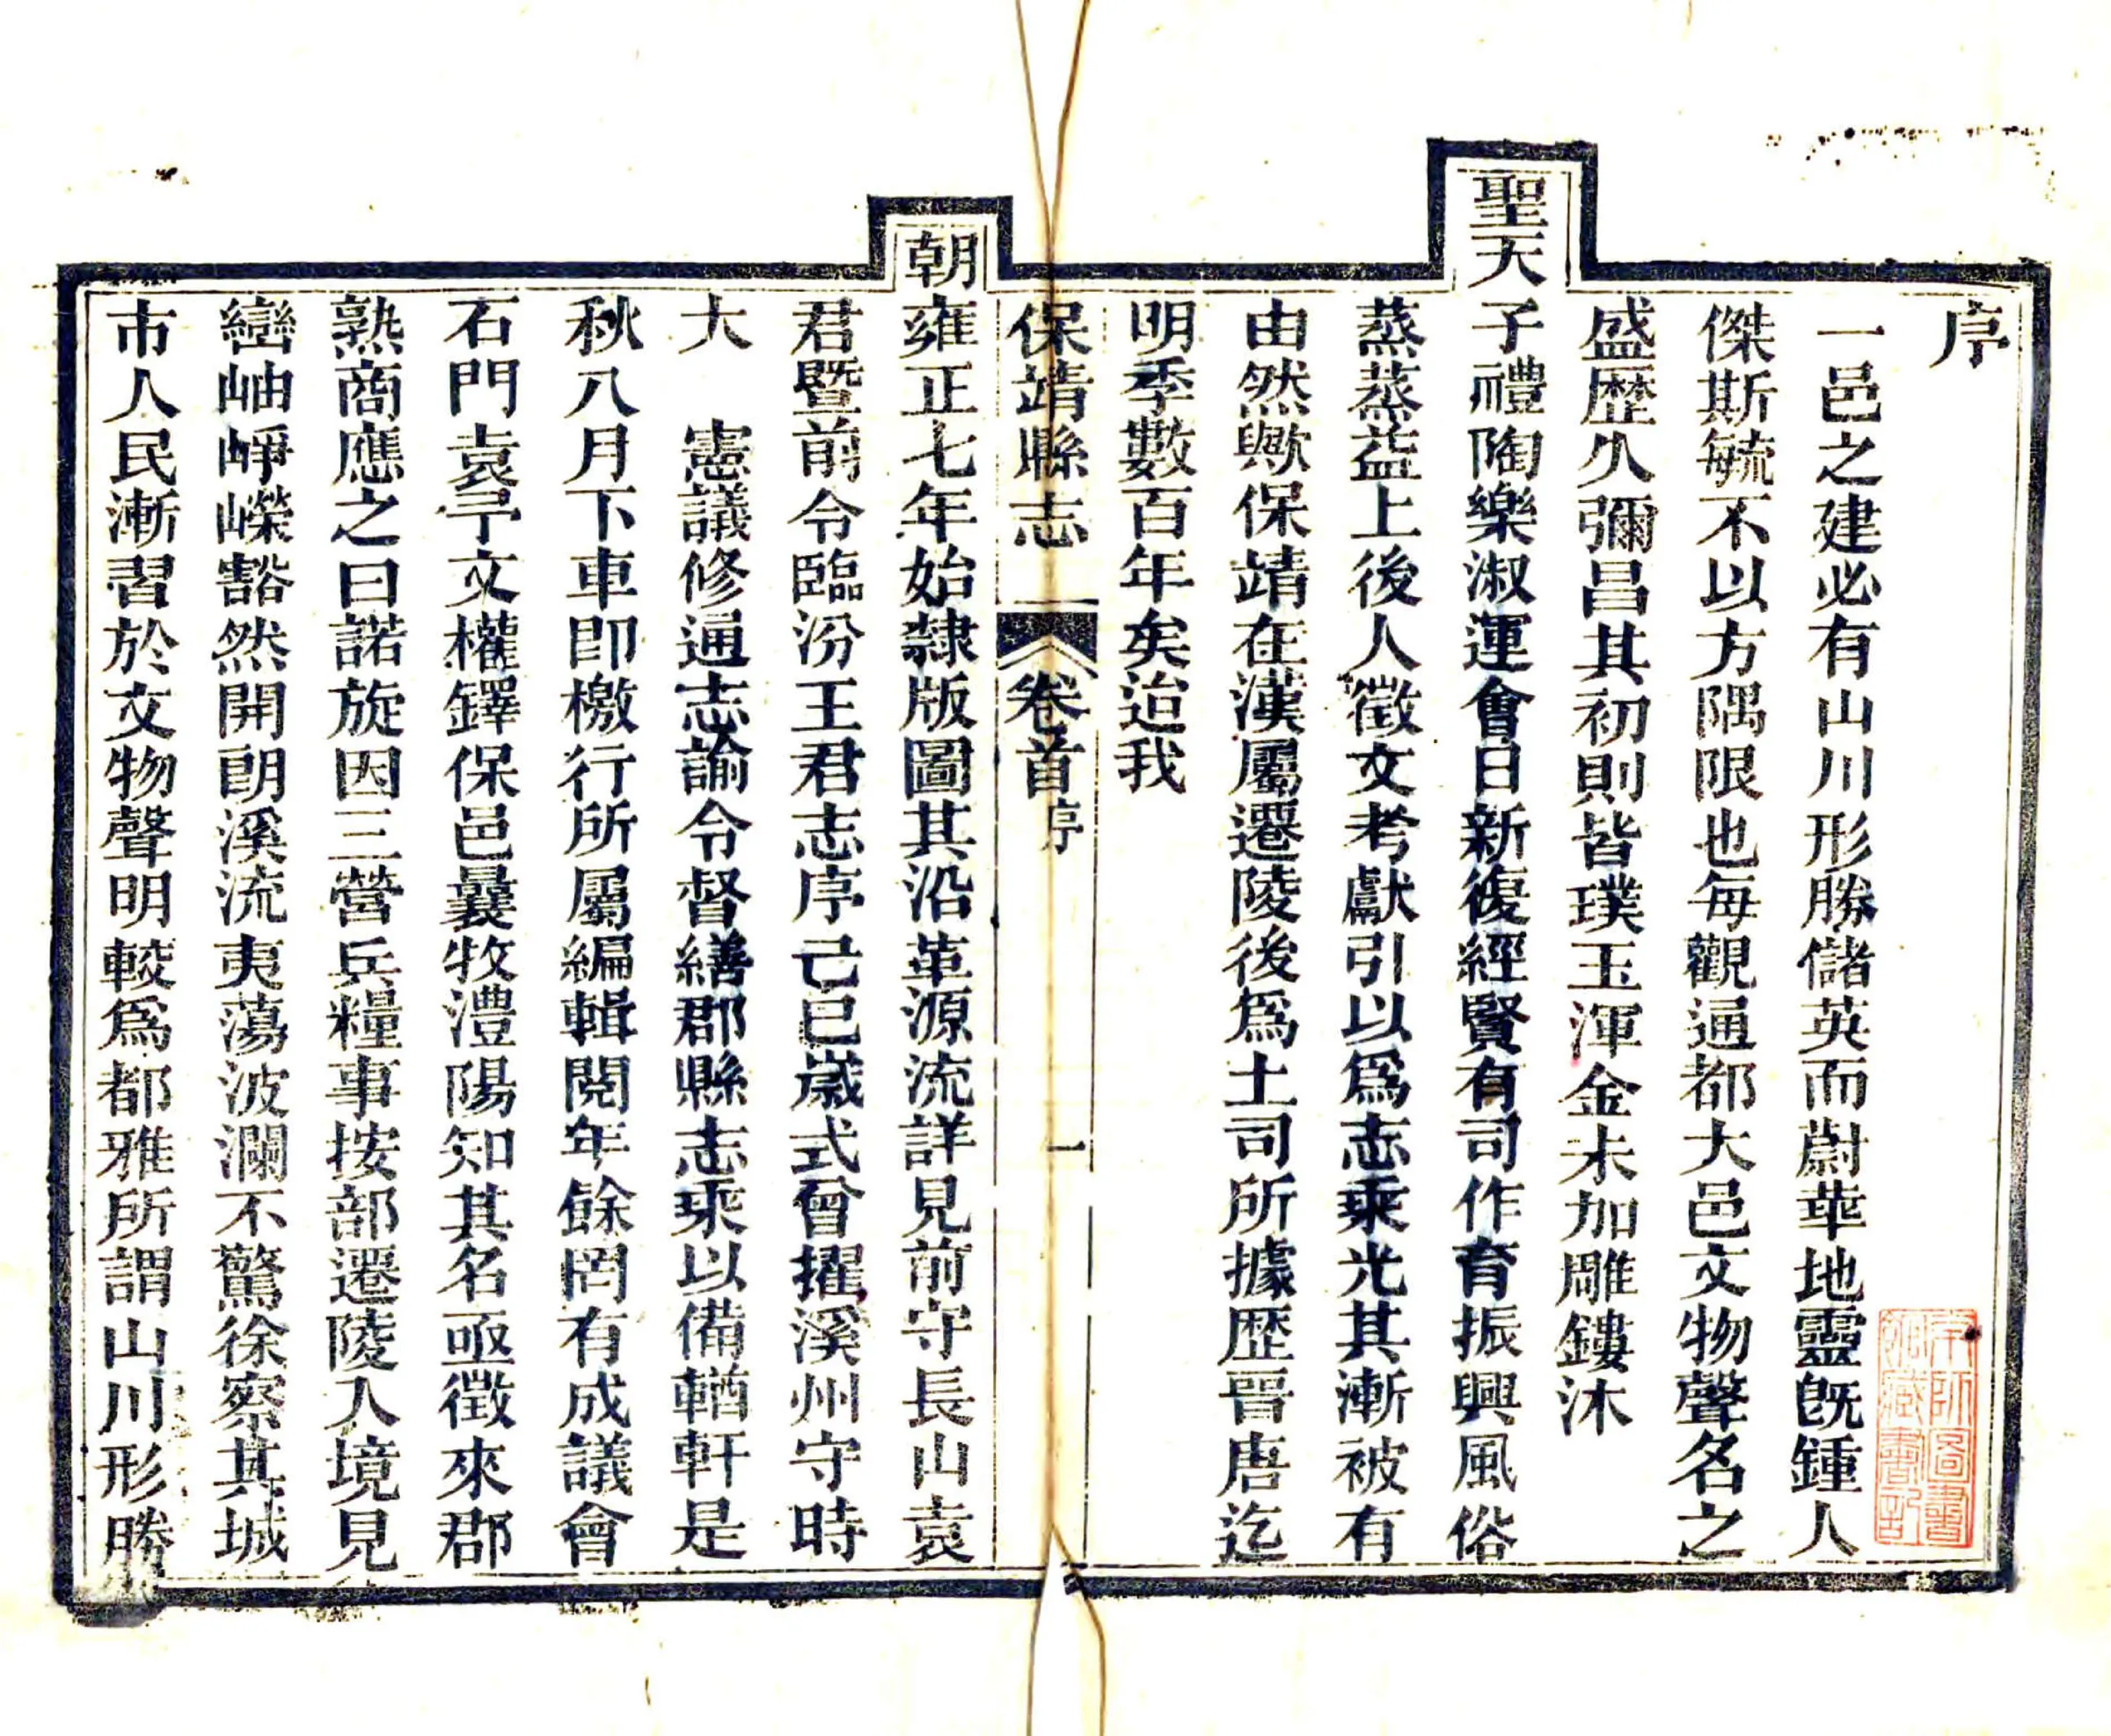 序
一邑之建必有山川形勝儲英而蔚華地靈旣鍾人
傑斯毓不以方隅限也每觀通都大邑文物聲名之
盛歷久彌昌其初則皆璞玉渾金未加雕鏤沐
聖天子禮陶樂淑運會日新復經賢有司作育振興風俗
蒸蒸益上後人徵文考獻引以爲志乘光其漸被有
由然歟保靖在漢屬遷陵後爲土司所據歷晉唐迄
明季數百年矣迨我
保靖縣志 卷首序 一
朝雍正七年始隸版圖其沿革源流詳見前守長山袁
君暨前令臨汾王君志序己巳歲式曾擢溪州守時
大 憲議修通志諭令督繕郡縣志乘以備輶軒是
秋八月下車卽檄行所屬編輯閱年餘罔有成議會
石門袁㝊文權鐸保邑曩牧澧陽知其名亟徵來郡
熟商應之曰諾旋因三營兵糧事按部遷陵入境見
巒岫崢嶸豁然開朗溪流夷蕩波瀾不驚徐察其城
市人民漸習於文物聲明較爲都雅所謂山川形勝